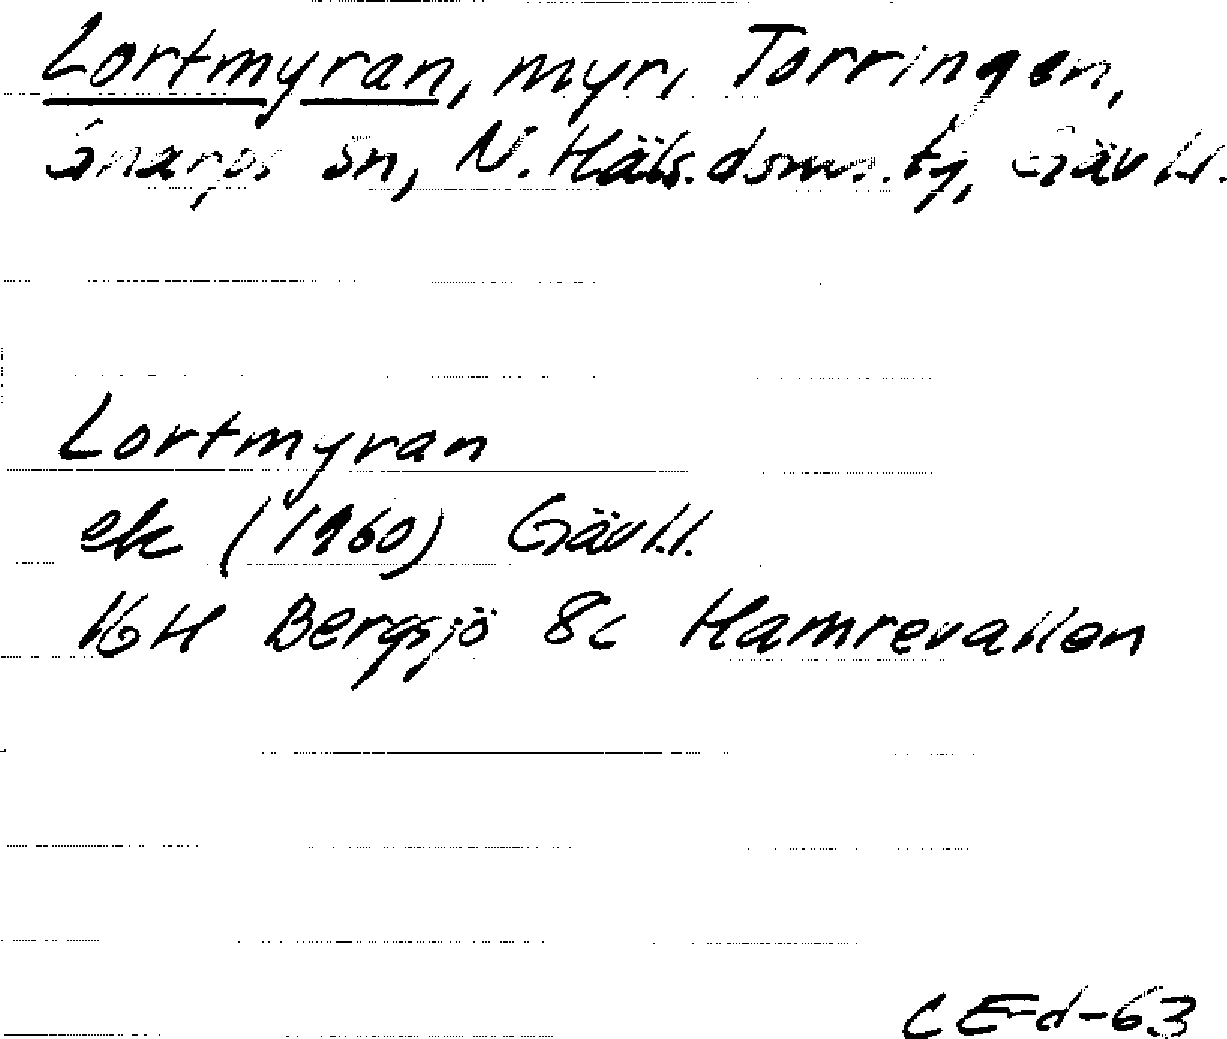 Lortmyran, myr, Torringen,
Gnarps sn, N. Häls. domss. tg, Gävl.l.
Lortmyran
ek (1960) Gävl.l.
16H Bergsjö 8c Hamrevallen
CEd-63